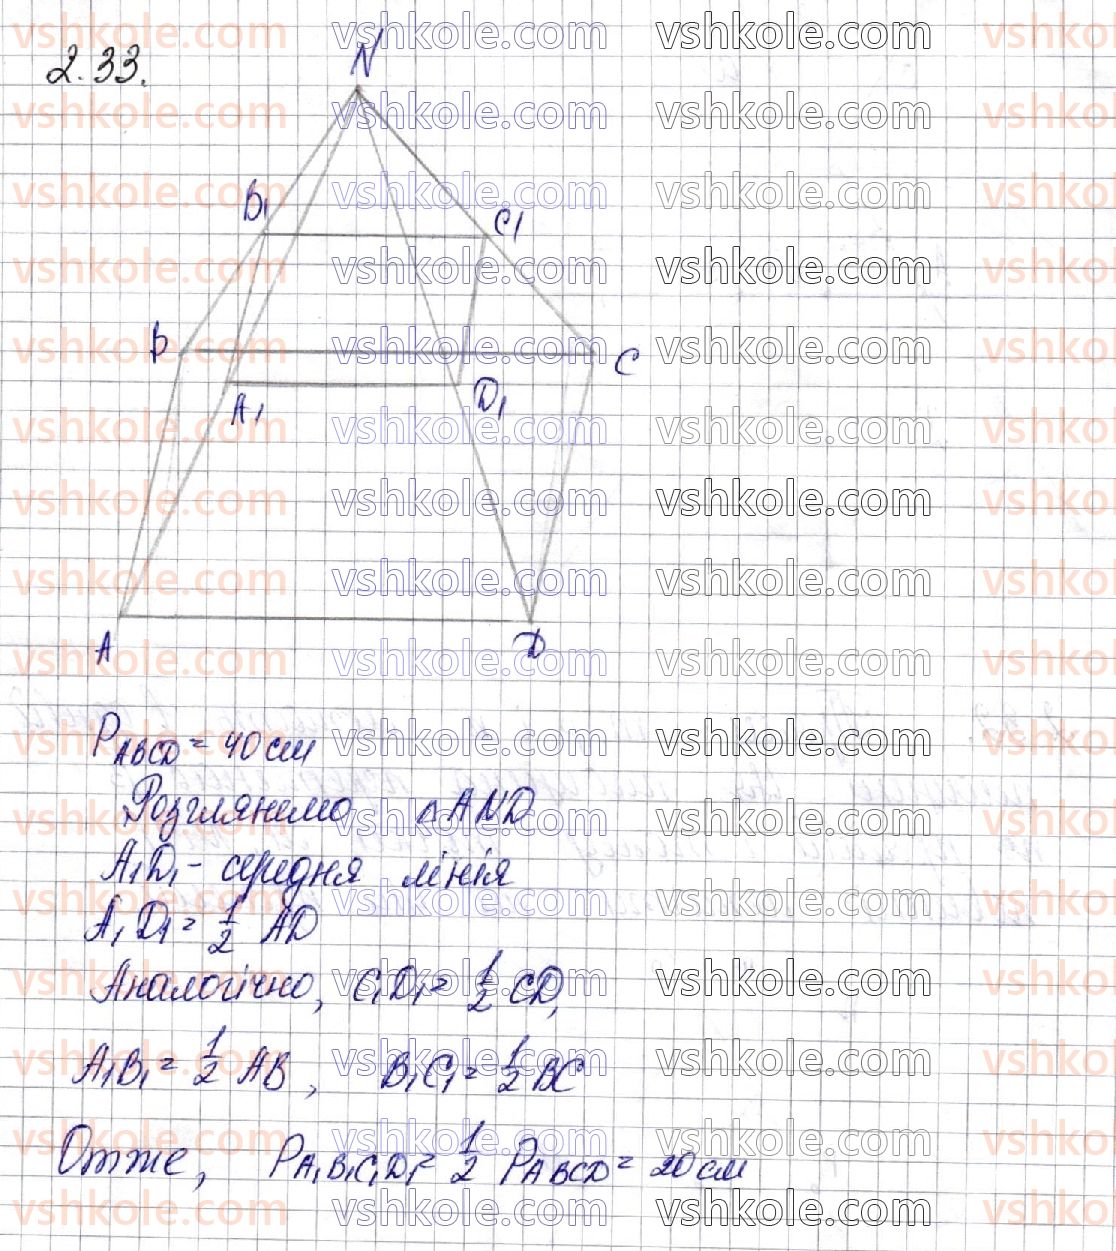 2.33.
N
B₁
C₁
B
C
A₁
D₁
A
D
P_ABCD = 40 см
Розглянемо △AND
A₁D₁ - середня лінія
A₁D₁ = 1/2 AD
Аналогічно, C₁D₁ = 1/2 CD,
A₁B₁ = 1/2 AB, B₁C₁ = 1/2 BC
Отже, P_A₁B₁C₁D₁ = 1/2 P_ABCD = 20 см
vshkole.com